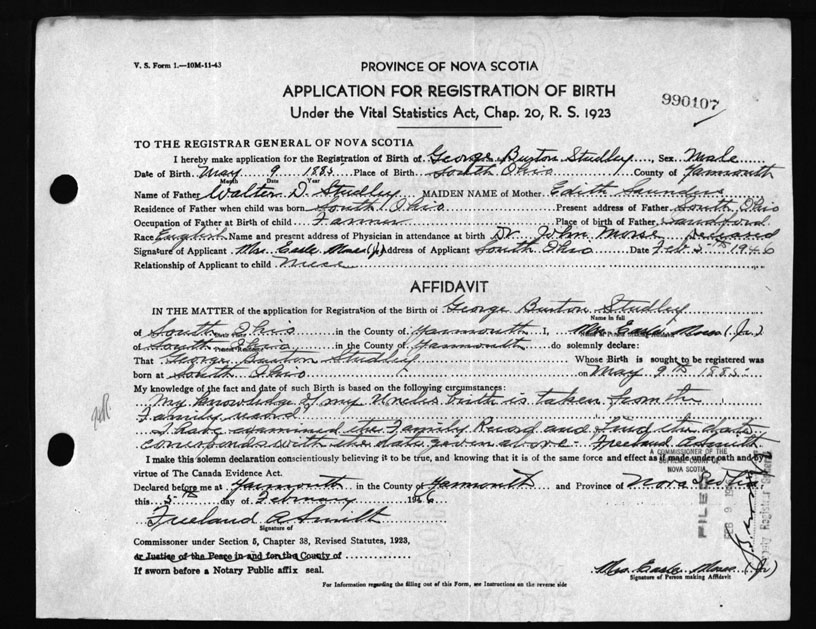 V. S. Form 1.—10M-11-43
PROVINCE OF NOVA SCOTIA
APPLICATION FOR REGISTRATION OF BIRTH
990107
Under the Vital Statistics Act, Chap. 20, R. S. 1923
TO THE REGISTRAR GENERAL OF NOVA SCOTIA
I hereby make application for the Registration of Birth of George Burton Studley, Sex Male
Date of Birth May 9 1885 Place of Birth South Ohio County of Yarmouth
Month Date Year
Name of Father Walter D. Studley MAIDEN NAME of Mother Edith Saunders
Residence of Father when child was born South Ohio Present address of Father South Ohio
Occupation of Father at Birth of child Farmer Place of birth of Father Sandford
Race English Name and present address of Physician in attendance at birth Dr John Morse Deceased
Signature of Applicant Mrs. Earle Moses (Jr) Address of Applicant South Ohio Date Feb 5th 1946
Relationship of Applicant to child Niece
AFFIDAVIT
IN THE MATTER of the application for Registration of the Birth of George Burton Studley
Name in full
of South Ohio in the County of Yarmouth I, Mrs Earle Moses (Jr.)
of South Ohio in the County of Yarmouth do solemnly declare:
That George Burton Studley Whose Birth is sought to be registered was
born at South Ohio on May 9th 1885
My knowledge of the fact and date of such Birth is based on the following circumstances:
My knowledge of my Uncles birth is taken from the
Family record
I have examined the Family Record and find the date
corresponds with the date given above - Freeland A Smith
A COMMISSIONER OF THE
SUPREME COURT OF
NOVA SCOTIA
I make this solemn declaration conscientiously believing it to be true, and knowing that it is of the same force and effect as if made under oath and by
virtue of The Canada Evidence Act.
Declared before me at Yarmouth in the County of Yarmouth and Province of Nova Scotia
this 5th day of February 1946
Freeland A Smith
Signature of
Commissioner under Section 5, Chapter 38, Revised Statutes, 1923,
or Justice of the Peace in and for the County of
If sworn before a Notary Public affix seal.
FILED
FEB 9 194
Deputy Registrar General
Mrs Earle Moses (Jr)
Signature of Person making Affidavit
For Information regarding the filling out of this Form, see Instructions on the reverse side